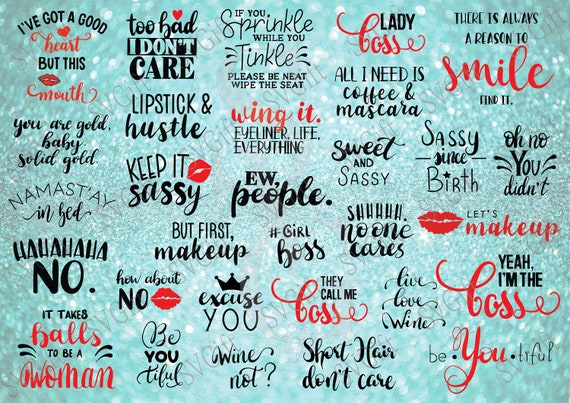 I'VE GOT A GOOD
heart
BUT THIS
mouth
too bad
I DON'T
CARE
IF YOU
Sprinkle
WHILE YOU
Tinkle
PLEASE BE NEAT
WIPE THE SEAT
LADY
boss
THERE IS ALWAYS
A REASON TO
smile
FIND IT.
LIPSTICK &
hustle
wing it.
EYELINER, LIFE,
EVERYTHING
ALL I NEED IS
coffee &
mascara
you are gold,
baby
solid gold.
KEEP IT
sassy
EW,
people.
sweet
AND
SASSY
SASSY
since
BIRTH
oh no
YOU
didn't
NAMAST'AY
in bed
BUT FIRST,
makeup
#GIRL
boss
SHHHH.
no one
cares
LET'S
makeup
HAHAHAHA
NO.
how about
NO
excuse
YOU
THEY
CALL ME
boss
live
love
Wine
YEAH,
I'M THE
boss
IT TAKES
balls
TO BE A
WOMAN
Be
YOU
tiful
Wine
not?
Short Hair
don't care
be•You•tiful